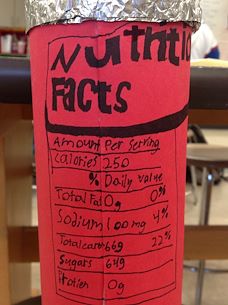 Nutritio
Facts
Amount Per Serving
Calories 250
% Daily value
Total Fat 0g 0%
Sodium 100mg 4%
Total carb 66g 22%
Sugars 64g
Protien 0g